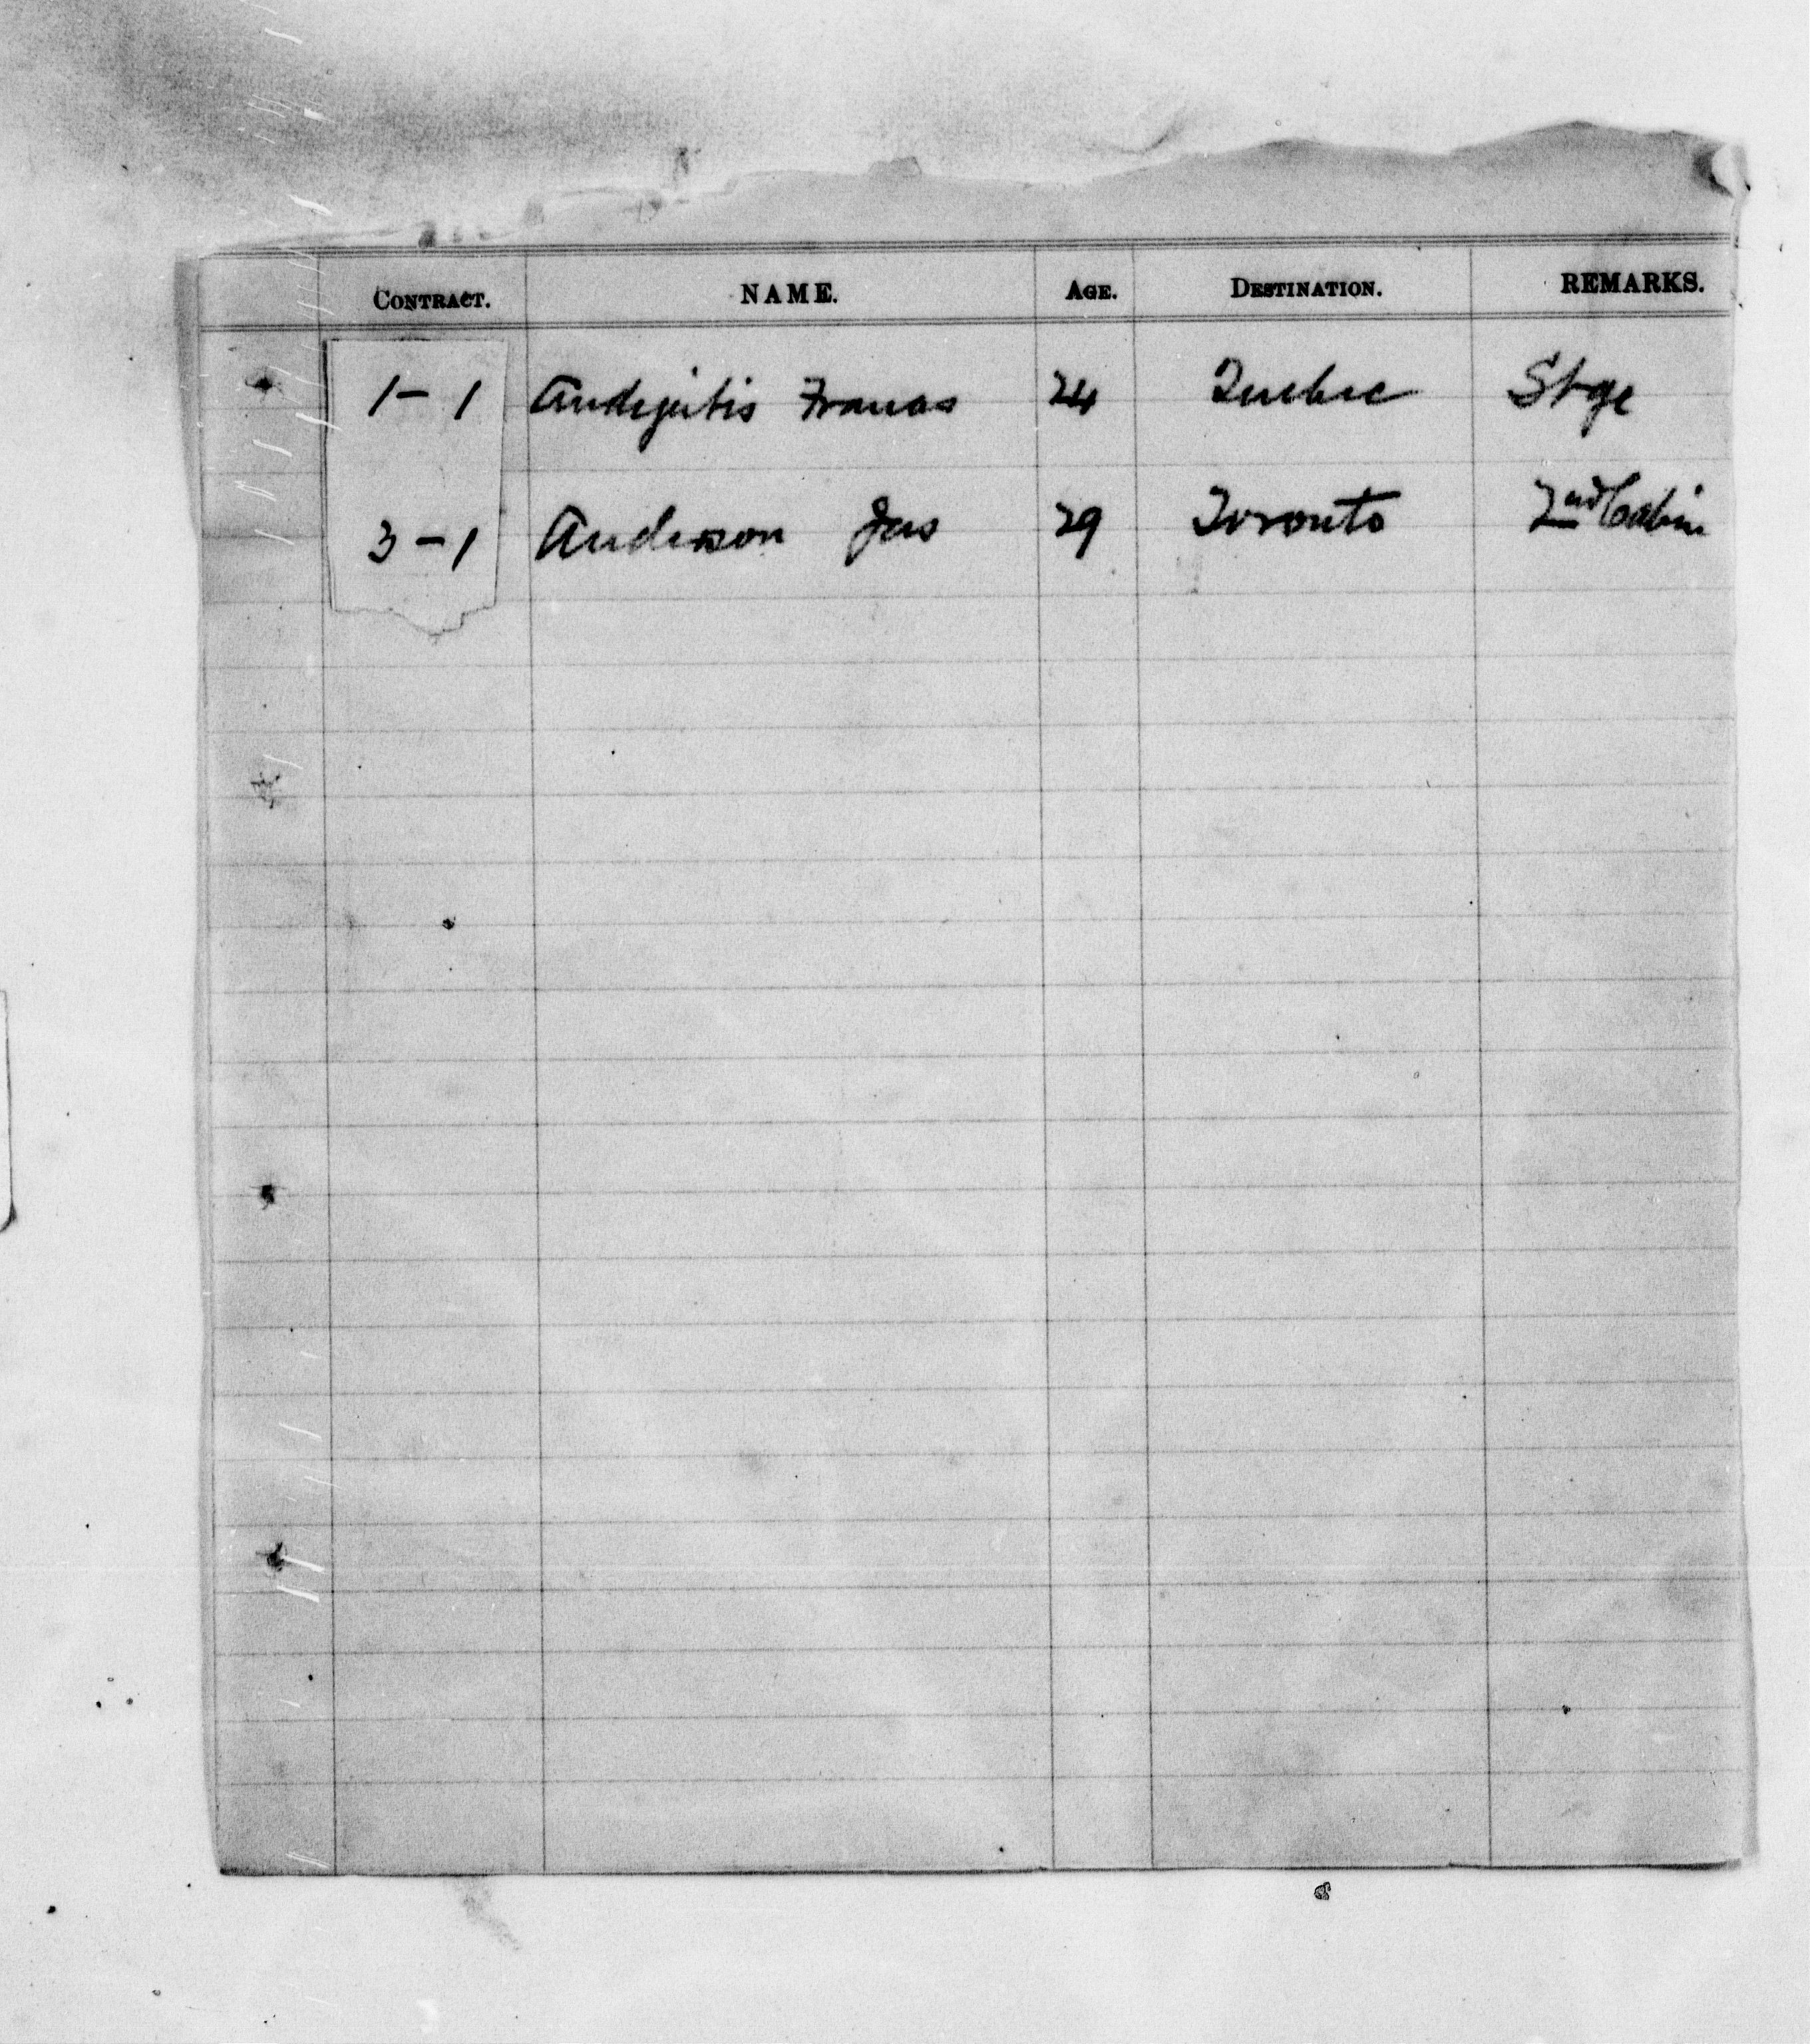 CONTRACT. NAME. AGE. DESTINATION. REMARKS.
1-1 Andejutis Franas 24 Quebec Stge
3-1 Anderson Jas 29 Toronto 2nd Cabin